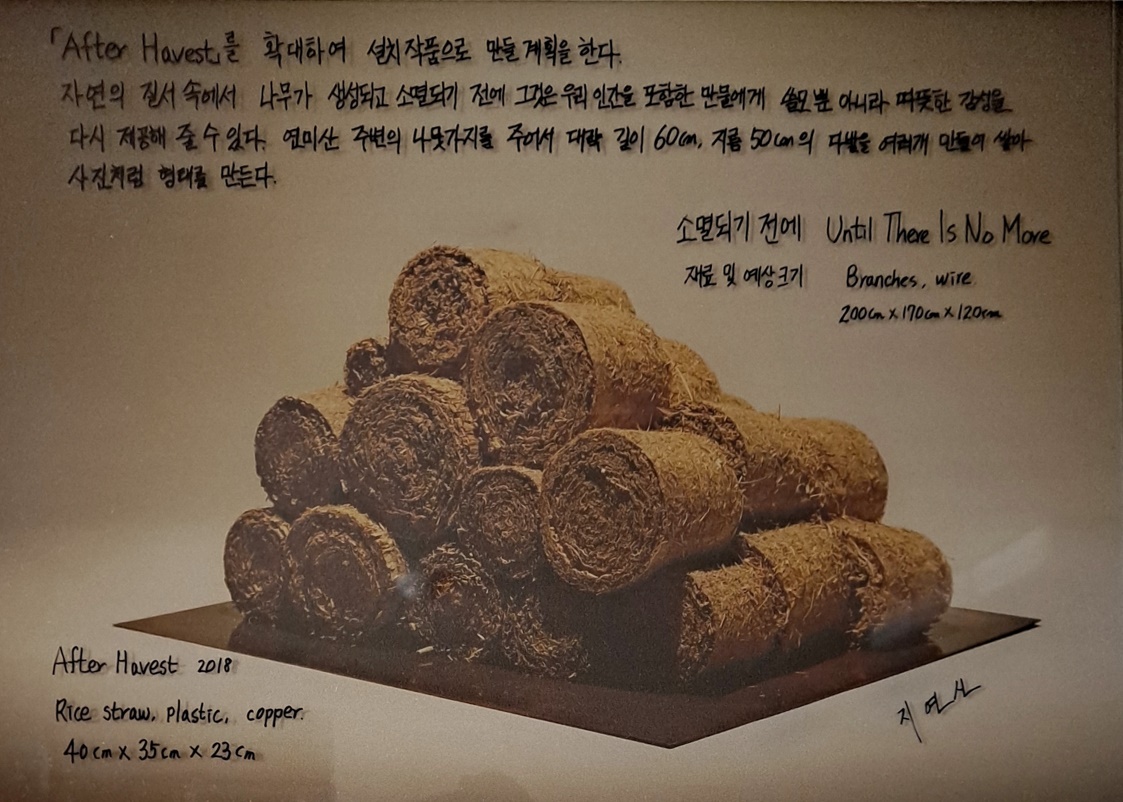 「After Havest」를 확대하여 설치작품으로 만들 계획을 한다.
자연의 질서 속에서 나무가 생성되고 소멸되기 전에 그것은 우리 인간을 포함한 만물에게 쓸모 뿐 아니라 따뜻한 감성을
다시 제공해 줄 수 있다. 연미산 주변의 나뭇가지를 주어서 대략 길이 60cm, 지름 50cm의 다발을 여러개 만들어 쌓아
사진처럼 형태를 만든다.
소멸되기 전에 Until There Is No More
재료 및 예상크기 Branches, wire
200cm x 170cm x 120cm
After Havest 2018
Rice straw, plastic, copper.
40cm x 35cm x 23cm